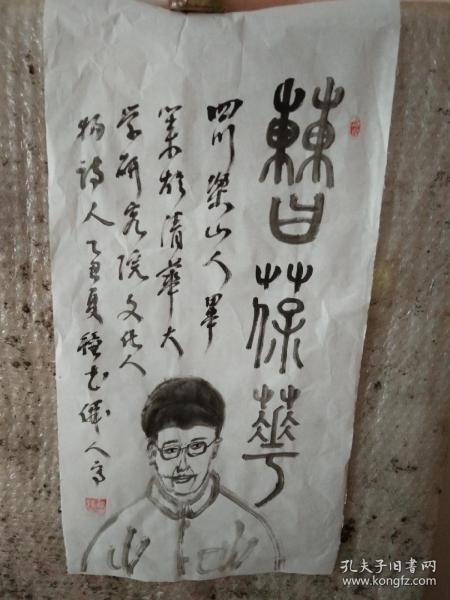 曹葆華
四川樂山人畢
業於清華大
学研究院文化人
物詩人乙丑夏
孔夫子旧书网
www.kongfz.com